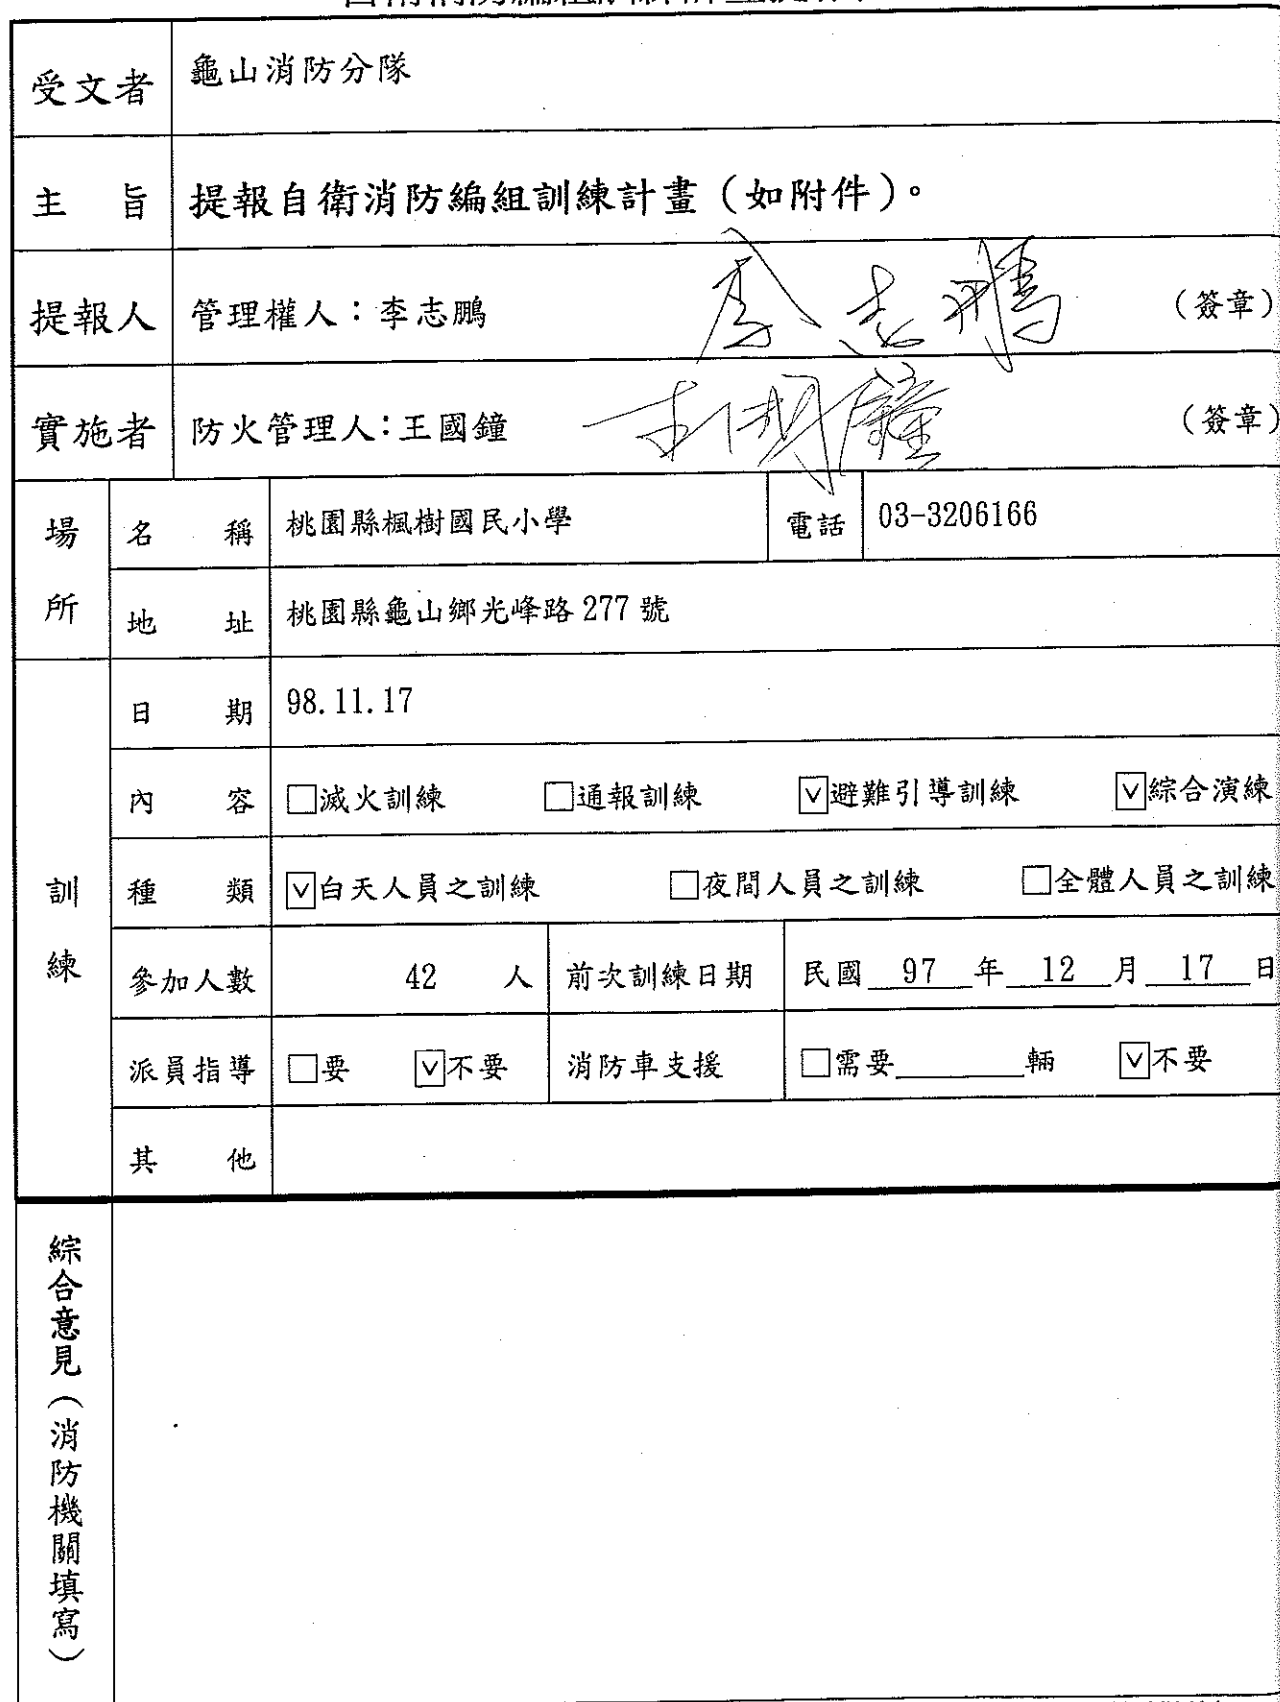 受文者 龜山消防分隊
主旨 提報自衛消防編組訓練計畫（如附件）。
提報人 管理權人：李志鵬 李志鵬 （簽章）
實施者 防火管理人：王國鐘 王國鐘 （簽章）
場所 名稱 桃園縣楓樹國民小學 電話 03-3206166
地址 桃園縣龜山鄉光峰路 277 號
訓練 日期 98.11.17
內容 □滅火訓練 □通報訓練 ☑避難引導訓練 ☑綜合演練
種類 ☑白天人員之訓練 □夜間人員之訓練 □全體人員之訓練
參加人數 42 人 前次訓練日期 民國 97 年 12 月 17 日
派員指導 □要 ☑不要 消防車支援 □需要______輛 ☑不要
其他
綜合意見（消防機關填寫）